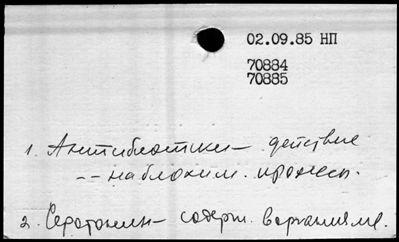 02.09.85 НП
70884
70885
1. Антибиотики – действие
-- на биохим. процесс.
2. Серотонин – содерж. в органах